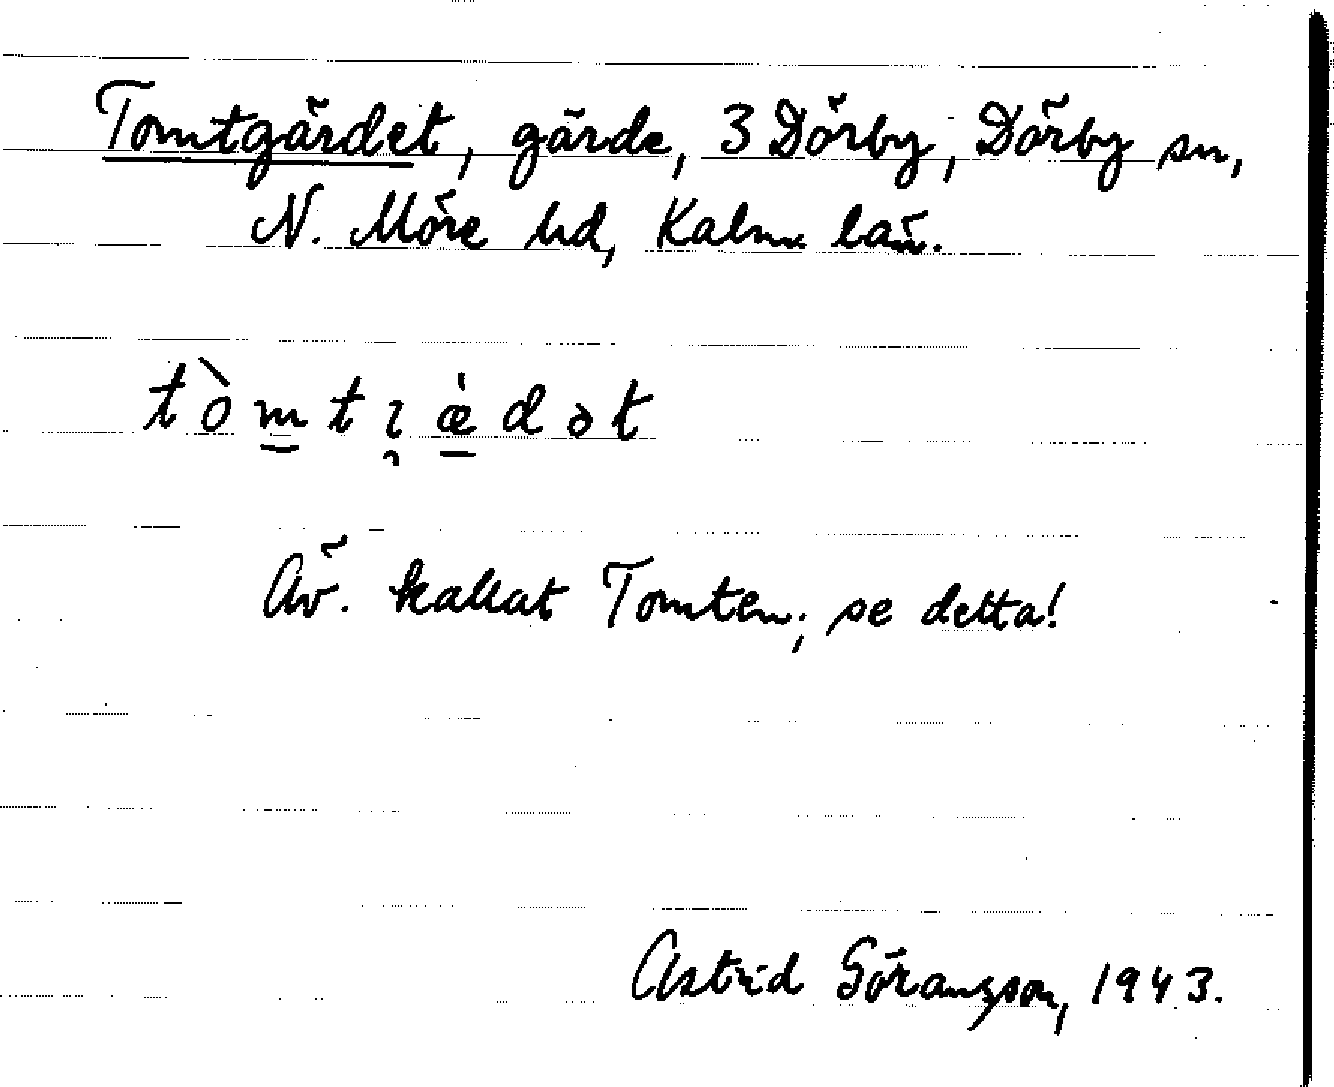 Tomtgärdet, gärde, 3 Dörby, Dörby sn,
N. Möre hd, Kalm. län.
tòmtɩædət
Äv. kallat Tomten; se detta!
Astrid Göransson, 1943.